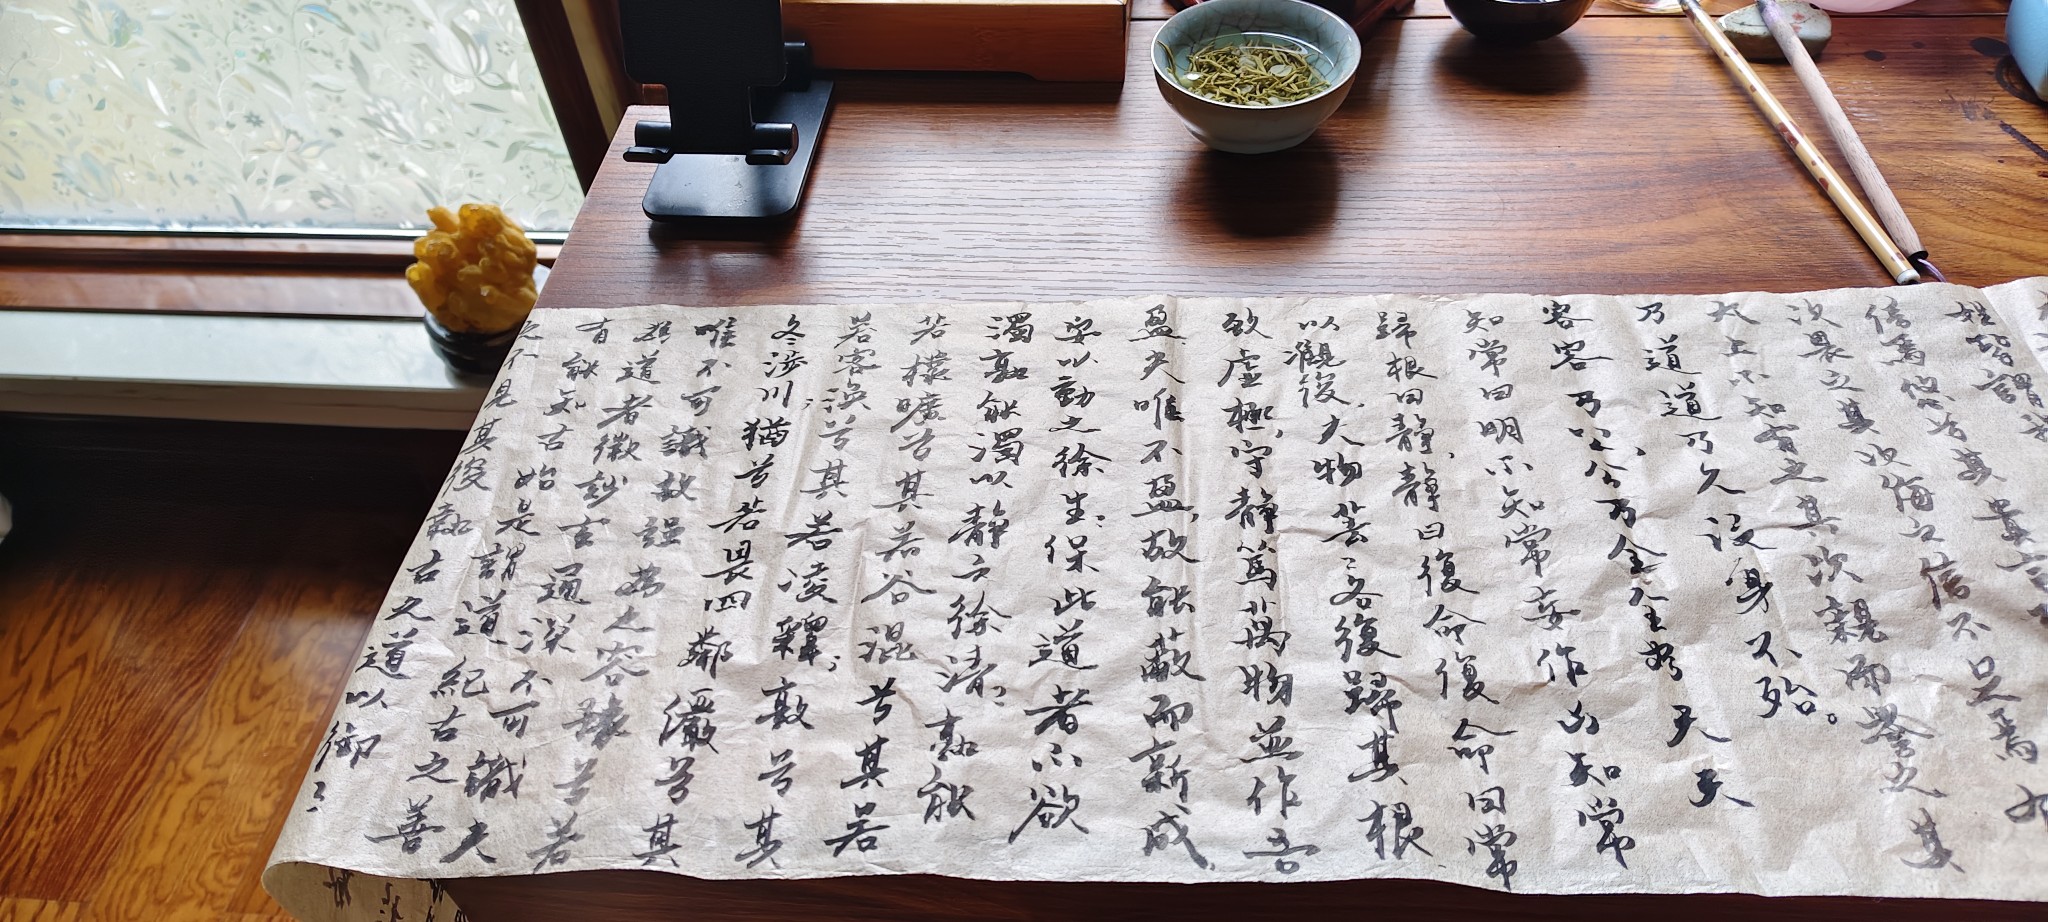 之不見其後執古之道以御
有能知古始是謂道紀古之善
為道者微妙玄通深不可識夫
唯不可識故強為之容豫兮若
冬涉川;猶兮若畏四鄰儼兮其
若客渙兮其若凌釋;敦兮其
若樸曠兮其若谷混兮其若
濁孰能濁以靜之徐清;孰能
安以動之徐生;保此道者不欲
盈夫唯不盈,故能敝而新成,
致虛極,守靜篤萬物並作吾
以觀復,夫物芸〻各復歸其根,
歸根曰靜,靜曰復命復命曰常
知常曰明不知常妄作凶知常
容容乃公公乃全全乃天天
乃道道乃久没身不殆。
太上不知有之其次親而譽之其
次畏之其次侮之信不足焉
信焉悠兮其貴言
姓皆謂我